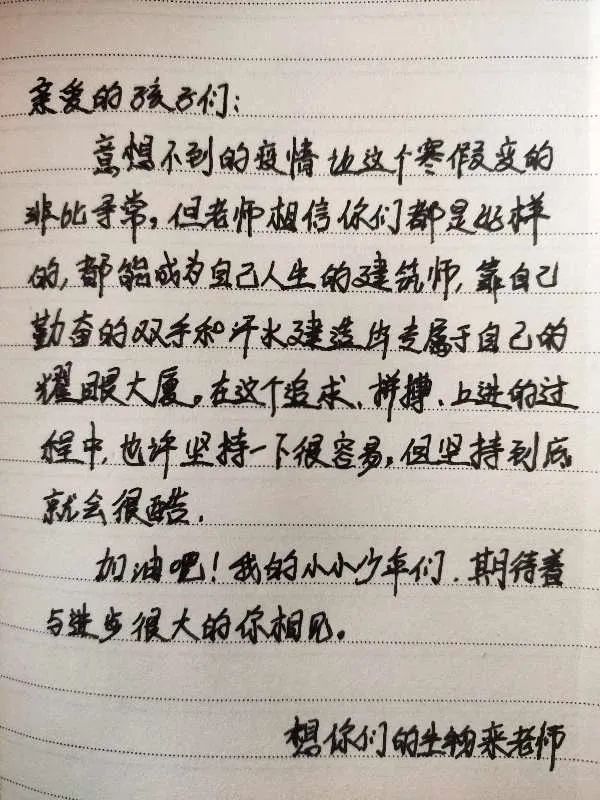 亲爱的孩子们:
意想不到的疫情让这个寒假变的
非比寻常,但老师相信你们都是好样
的,都能成为自己人生的建筑师,靠自己
勤奋的双手和汗水建造出专属于自己的
耀眼大厦。在这个追求、拼搏、上进的过
程中,也许坚持一下很容易,但坚持到底
就会很酷.
加油吧!我的小小少年们,期待着
与进步很大的你相见。
想你们的生物来老师